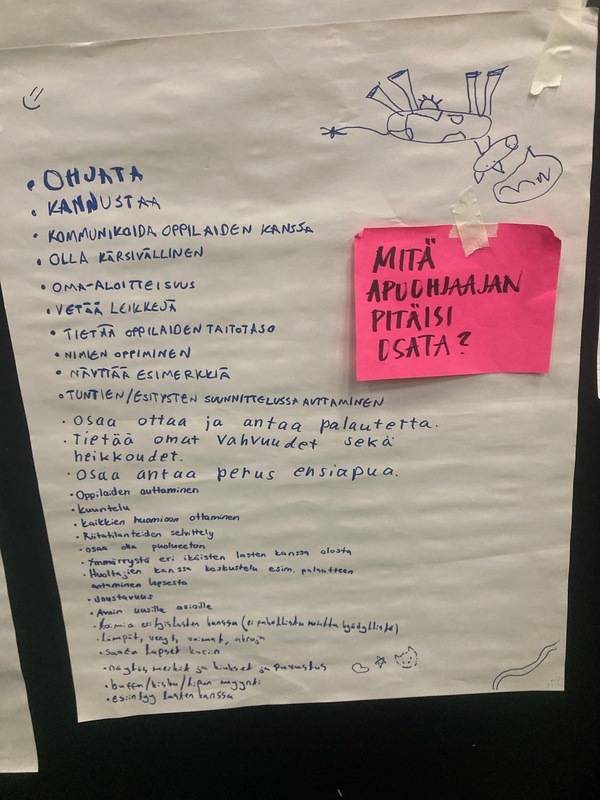 • OHJATA
• KANNUSTAA
• KOMMUNIKOIDA OPPILAIDEN KANSSA
• OLLA KÄRSIVÄLLINEN
• OMA-ALOITTEISUUS
• VETÄÄ LEIKKEJÄ
• TIETÄÄ OPPILAIDEN TAITOTASO
• NIMIEN OPPIMINEN
• NÄYTTÄÄ ESIMERKKIÄ
• TUNTIEN/ESITYSTEN SUUNNITTELUSSA AUTTAMINEN
• Osaa ottaa ja antaa palautetta.
• Tietää omat vahvuudet sekä
heikkoudet.
• Osaa antaa perus ensiapua.
• Oppilaiden auttaminen
• kuuntelu
• kaikkien huomioon ottaminen
• Riitatilanteiden selvittely
• osaa olla puolueeton
• Ymmärrystä eri ikäisten lasten kanssa olosta
• Huoltajien kanssa keskustelu esim. palautteen
antaminen lapsesta
• Joustavuus
• Avoin uusille asioille
• toimia erityislasten kanssa (ei pakollista mutta hyödyllistä)
• Lämpät, venyt, voimat,
• saada lapset kuriin
• näytös meikit ja hiukset ja puvustus
• buffa/kisku/lipun myynti
• esiintyy lasten kanssa
MITÄ
APUOHJAAJAN
PITÄISI
OSATA?